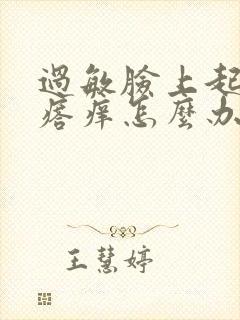 過敏臉上起
瘩痒怎麼办
王慧婷